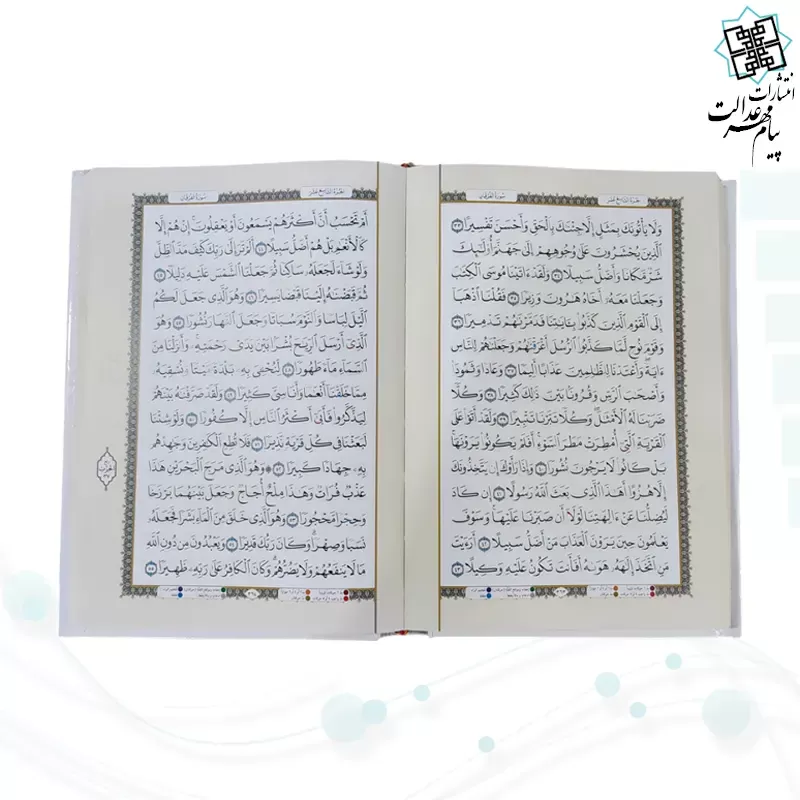 انتشارات
پیام مهر عدالت
سورة الفرقان
الجزء التاسع عشر
وَلَا يَأْتُونَكَ بِمَثَلٍ إِلَّا جِئْنَٰكَ بِٱلْحَقِّ وَأَحْسَنَ تَفْسِيرًا ٣٣
ٱلَّذِينَ يُحْشَرُونَ عَلَىٰ وُجُوهِهِمْ إِلَىٰ جَهَنَّمَ أُوْلَٰٓئِكَ
شَرٌّ مَّكَانًا وَأَضَلُّ سَبِيلًا ٣٤ وَلَقَدْ ءَاتَيْنَا مُوسَى ٱلْكِتَٰبَ
وَجَعَلْنَا مَعَهُۥٓ أَخَاهُ هَٰرُونَ وَزِيرًا ٣٥ فَقُلْنَا ٱذْهَبَآ
إِلَى ٱلْقَوْمِ ٱلَّذِينَ كَذَّبُواْ بِـَٔايَٰتِنَا فَدَمَّرْنَٰهُمْ تَدْمِيرًا ٣٦
وَقَوْمَ نُوحٍ لَّمَّا كَذَّبُواْ ٱلرُّسُلَ أَغْرَقْنَٰهُمْ وَجَعَلْنَٰهُمْ لِلنَّاسِ
ءَايَةً وَأَعْتَدْنَا لِلظَّٰلِمِينَ عَذَابًا أَلِيمًا ٣٧ وَعَادًا وَثَمُودَاْ
وَأَصْحَٰبَ ٱلرَّسِّ وَقُرُونًۢا بَيْنَ ذَٰلِكَ كَثِيرًا ٣٨ وَكُلًّا
ضَرَبْنَا لَهُ ٱلْأَمْثَٰلَ وَكُلًّا تَبَّرْنَا تَتْبِيرًا ٣٩ وَلَقَدْ أَتَوْاْ عَلَى
ٱلْقَرْيَةِ ٱلَّتِىٓ أُمْطِرَتْ مَطَرَ ٱلسَّوْءِ أَفَلَمْ يَكُونُواْ يَرَوْنَهَا
بَلْ كَانُواْ لَا يَرْجُونَ نُشُورًا ٤٠ وَإِذَا رَأَوْكَ إِن يَتَّخِذُونَكَ
إِلَّا هُزُوًا أَهَٰذَا ٱلَّذِى بَعَثَ ٱللَّهُ رَسُولًا ٤١ إِن كَادَ
لَيُضِلُّنَا عَنْ ءَالِهَتِنَا لَوْلَآ أَن صَبَرْنَا عَلَيْهَا وَسَوْفَ
يَعْلَمُونَ حِينَ يَرَوْنَ ٱلْعَذَابَ مَنْ أَضَلُّ سَبِيلًا ٤٢ أَرَءَيْتَ
مَنِ ٱتَّخَذَ إِلَٰهَهُۥ هَوَىٰهُ أَفَأَنتَ تَكُونُ عَلَيْهِ وَكِيلًا ٤٣
الجزء التاسع عشر
سورة الفرقان
أَمْ تَحْسَبُ أَنَّ أَكْثَرَهُمْ يَسْمَعُونَ أَوْ يَعْقِلُونَ إِنْ هُمْ إِلَّا
كَٱلْأَنْعَٰمِ بَلْ هُمْ أَضَلُّ سَبِيلًا ٤٤ أَلَمْ تَرَ إِلَىٰ رَبِّكَ كَيْفَ مَدَّ ٱلظِّلَّ
وَلَوْ شَآءَ لَجَعَلَهُۥ سَاكِنًا ثُمَّ جَعَلْنَا ٱلشَّمْسَ عَلَيْهِ دَلِيلًا ٤٥
ثُمَّ قَبَضْنَٰهُ إِلَيْنَا قَبْضًا يَسِيرًا ٤٦ وَهُوَ ٱلَّذِى جَعَلَ لَكُمُ
ٱلَّيْلَ لِبَاسًا وَٱلنَّوْمَ سُبَاتًا وَجَعَلَ ٱلنَّهَارَ نُشُورًا ٤٧ وَهُوَ
ٱلَّذِىٓ أَرْسَلَ ٱلرِّيَٰحَ بُشْرًۢا بَيْنَ يَدَىْ رَحْمَتِهِۦ وَأَنزَلْنَا مِنَ
ٱلسَّمَآءِ مَآءً طَهُورًا ٤٨ لِّنُحْـِۧىَ بِهِۦ بَلْدَةً مَّيْتًا وَنُسْقِيَهُۥ
مِمَّا خَلَقْنَآ أَنْعَٰمًا وَأَنَاسِىَّ كَثِيرًا ٤٩ وَلَقَدْ صَرَّفْنَٰهُ بَيْنَهُمْ
لِيَذَّكَّرُواْ فَأَبَىٰٓ أَكْثَرُ ٱلنَّاسِ إِلَّا كُفُورًا ٥٠ وَلَوْ شِئْنَا
لَبَعَثْنَا فِى كُلِّ قَرْيَةٍ نَّذِيرًا ٥١ فَلَا تُطِعِ ٱلْكَٰفِرِينَ وَجَٰهِدْهُم
بِهِۦ جِهَادًا كَبِيرًا ٥٢ وَهُوَ ٱلَّذِى مَرَجَ ٱلْبَحْرَيْنِ هَٰذَا
عَذْبٌ فُرَاتٌ وَهَٰذَا مِلْحٌ أُجَاجٌ وَجَعَلَ بَيْنَهُمَا بَرْزَخًا
وَحِجْرًا مَّحْجُورًا ٥٣ وَهُوَ ٱلَّذِى خَلَقَ مِنَ ٱلْمَآءِ بَشَرًا فَجَعَلَهُۥ
نَسَبًا وَصِهْرًا وَكَانَ رَبُّكَ قَدِيرًا ٥٤ وَيَعْبُدُونَ مِن دُونِ ٱللَّهِ
مَا لَا يَنفَعُهُمْ وَلَا يَضُرُّهُمْ وَكَانَ ٱلْكَافِرُ عَلَىٰ رَبِّهِۦ ظَهِيرًا ٥٥